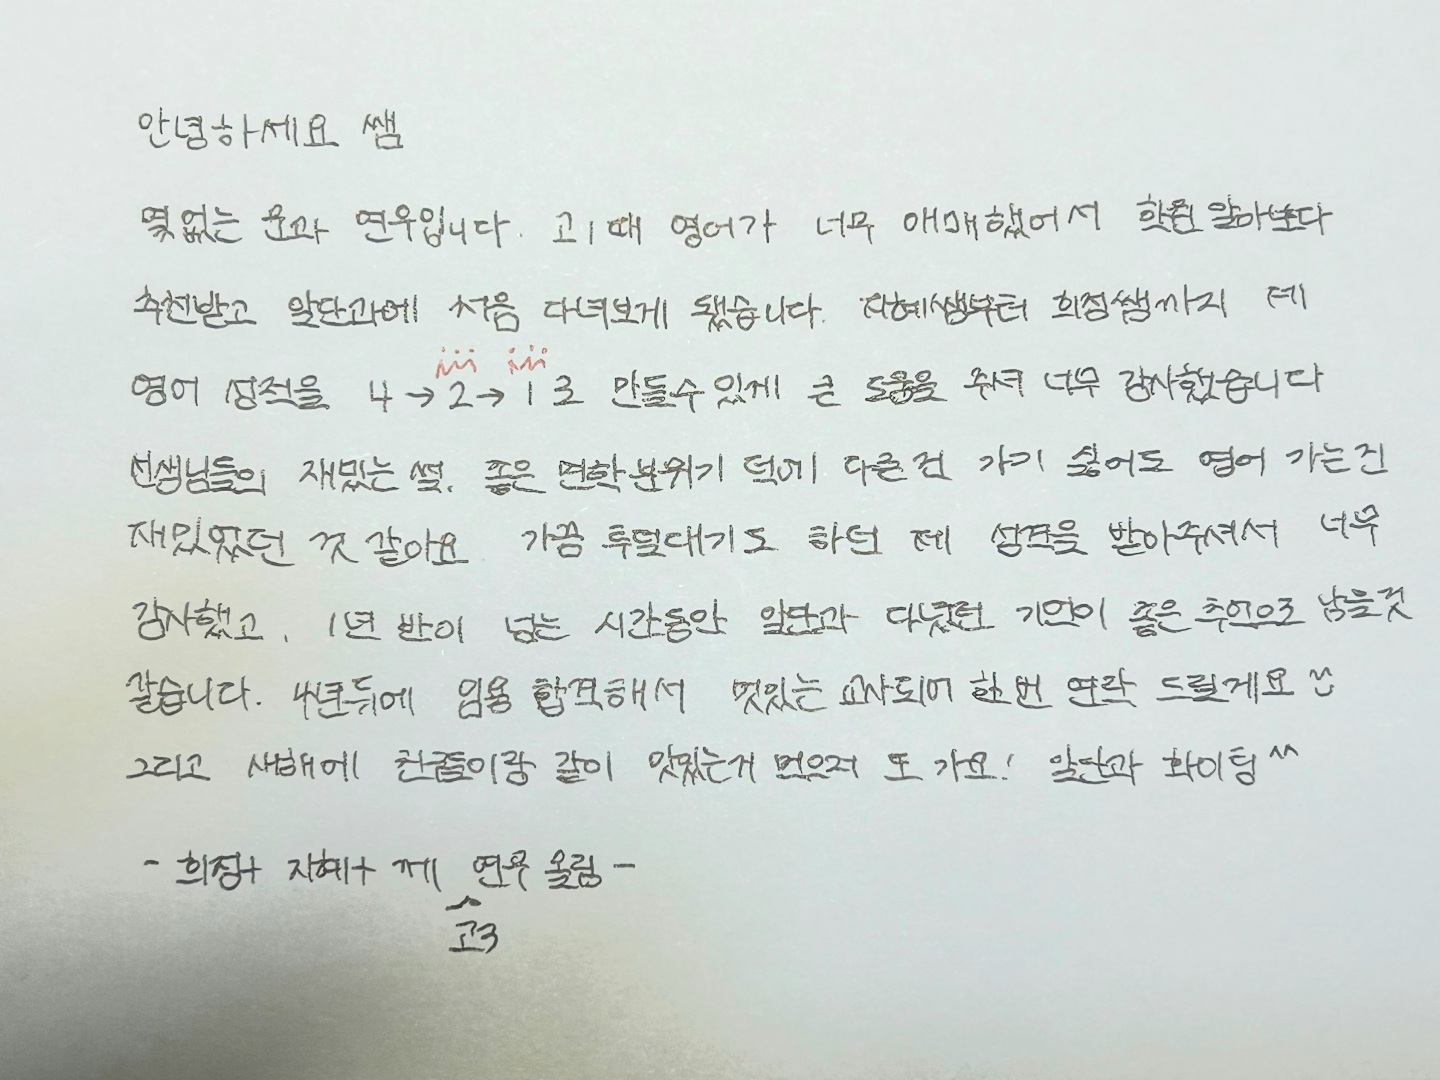 안녕하세요 쌤
몇없는 문과 연우입니다. 고1때 영어가 너무 애매했어서 학원 알아보다
추천받고 일단과에 처음 다녀보게 됐습니다. 지혜쌤부터 희정쌤까지 제
영어 성적을 4→2→1로 만들수있게 큰 도움을 주셔 너무 감사했습니다
선생님들의 재밌는 썰, 좋은 면학분위기 덕에 다른건 가기 싫어도 영어 가는건
재밌었던 것 같아요 가끔 투덜대기도 하던 제 성격을 받아주셔서 너무
감사했고, 1년 반이 넘는 시간동안 일단과 다녔던 기억이 좋은 추억으로 남을것
같습니다. 4년뒤에 임용 합격해서 멋있는 교사되어 한번 연락 드릴게요 ^^
그리고 새해에 친구들이랑 같이 맛있는거 먹으러 또 가요! 일단과 화이팅 ^^
- 희정+ 지혜+ 께 연우 올림 -
고3